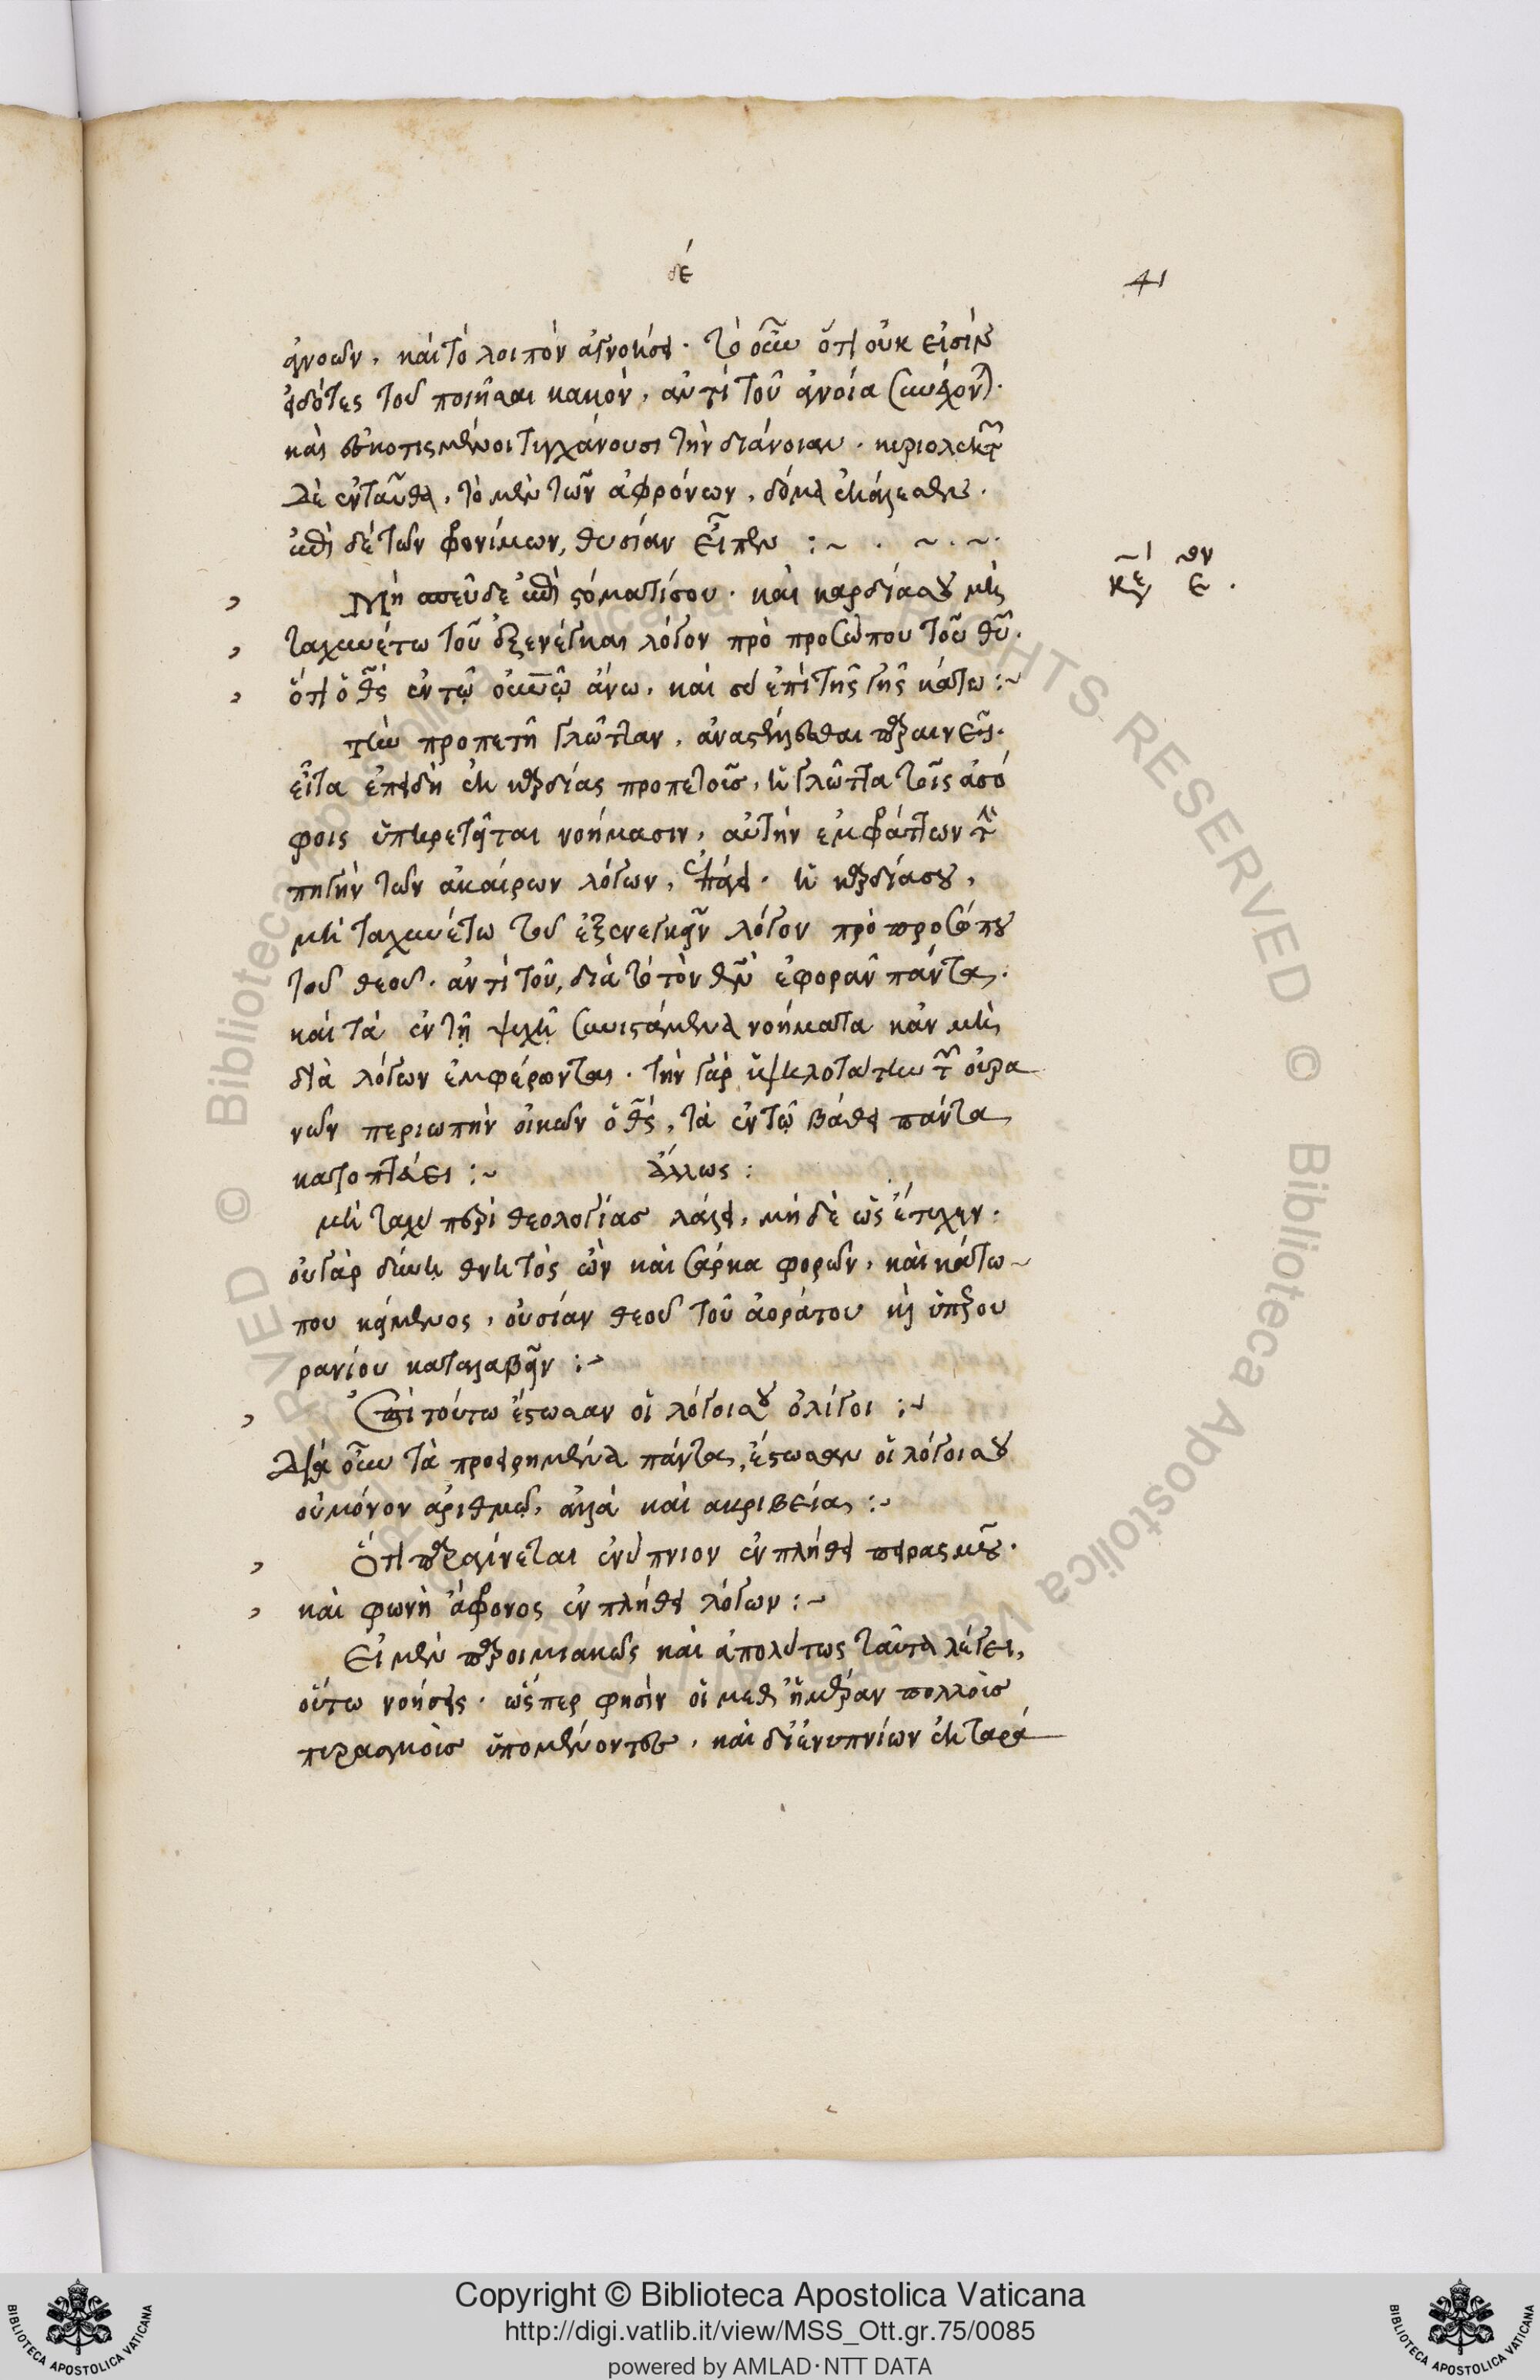 δέ
41
ἀνοῶν, καὶ τὸ λοιπὸν ἀγνοήσει. τὸ οὖν ὅτι οὐκ εἰσὶν
εἰδότες τοῦ ποιῆσαι κακὸν, ἀντὶ τοῦ ἀνοία συνέχον).
καὶ ἐσκοτισμένοι τυγχάνουσι τὴν διάνοιαν. κυριολεκτ
δὲ ἐνταῦθα, τὸ μὲν τῶν ἀφρόνων, δόμα ἐκάλεσεν.
ἐπὶ δὲ τῶν φρονίμων, θυσίαν εἶπεν :~ . ~ . ~ .
κε ε .
Μὴ σπεῦδε ἐπὶ στόματί σου. καὶ καρδία σου μὴ
ταχυνέτω τοῦ ἐξενέγκαι λόγον πρὸ προσώπου τοῦ θυ.
ὅτι ὁ θς ἐν τῷ οὐνῷ ἄνω, καὶ σὺ ἐπὶ τῆς γῆς κάτω :~
τὴν προπετῆ γλῶτταν, ἀναστέλλεσθαι παραινεῖ.
εἶτα ἐπειδὴ ἐκ καρδίας προπετοῦς, ἡ γλῶττα τοῖς ἀσό
φοις ὑπηρετεῖται νοήμασιν, αὐτὴν ἐμφράττων τὴν
πηγὴν τῶν ἀκαίρων λόγων, ἐπάγει. ἡ καρδία σου,
μὴ ταχυνέτω τοῦ ἐξενεγκεῖν λόγον πρὸ προσώπου
τοῦ θεοῦ. ἀντὶ τοῦ, διὰ τὸ τὸν θν ἐφορᾶν πάντα.
καὶ τὰ ἐν τῇ ψυχῇ συνιστάμενα νοήματα κἂν μὴ
διὰ λόγων ἐμφέρωνται. τὴν γὰρ ὑψηλοτάτην τῶν οὐρα
νῶν περιωπὴν οἰκῶν ὁ θς, τὰ ἐν τῷ βάθει πάντα
κατοπτεύει :~ ἄλλως :
μὴ ταχὺ περὶ θεολογίας λάλει, μὴ δὲ ὡς ἔτυχεν.
οὐ γὰρ δύνῃ θνητὸς ὢν καὶ σάρκα φορῶν, καὶ κάτω
που κείμενος, οὐσίαν θεοῦ τοῦ ἀοράτου καὶ ὑπερου
ρανίου καταλαβεῖν :~
Ἐπὶ τούτω ἔστωσαν οἱ λόγοι σου ὀλίγοι :~
Διὰ οὖν τὰ προειρημένα πάντα, ἔστωσαν οἱ λόγοι σου
οὐ μόνον ἀριθμῷ, ἀλλὰ καὶ ἀκριβεία :~
Ὅτι παραγίνεται ἐνύπνιον ἐν πλήθει πειρασμοῦ.
καὶ φωνὴ ἄφρονος ἐν πλήθει λόγων :~
Εἰ μὲν παροιμιακῶς καὶ ἀπολύτως ταῦτα λέγει,
οὕτω νοήσεις. ὥσπερ φησὶν οἱ μεθ' ἡμέραν πολλοῖς
πειρασμοῖς ὑπομένοντες, καὶ δι' ἐνυπνίων ἐκταρά
Copyright © Biblioteca Apostolica Vaticana
http://digi.vatlib.it/view/MSS_Ott.gr.75/0085
powered by AMLAD·NTT DATA